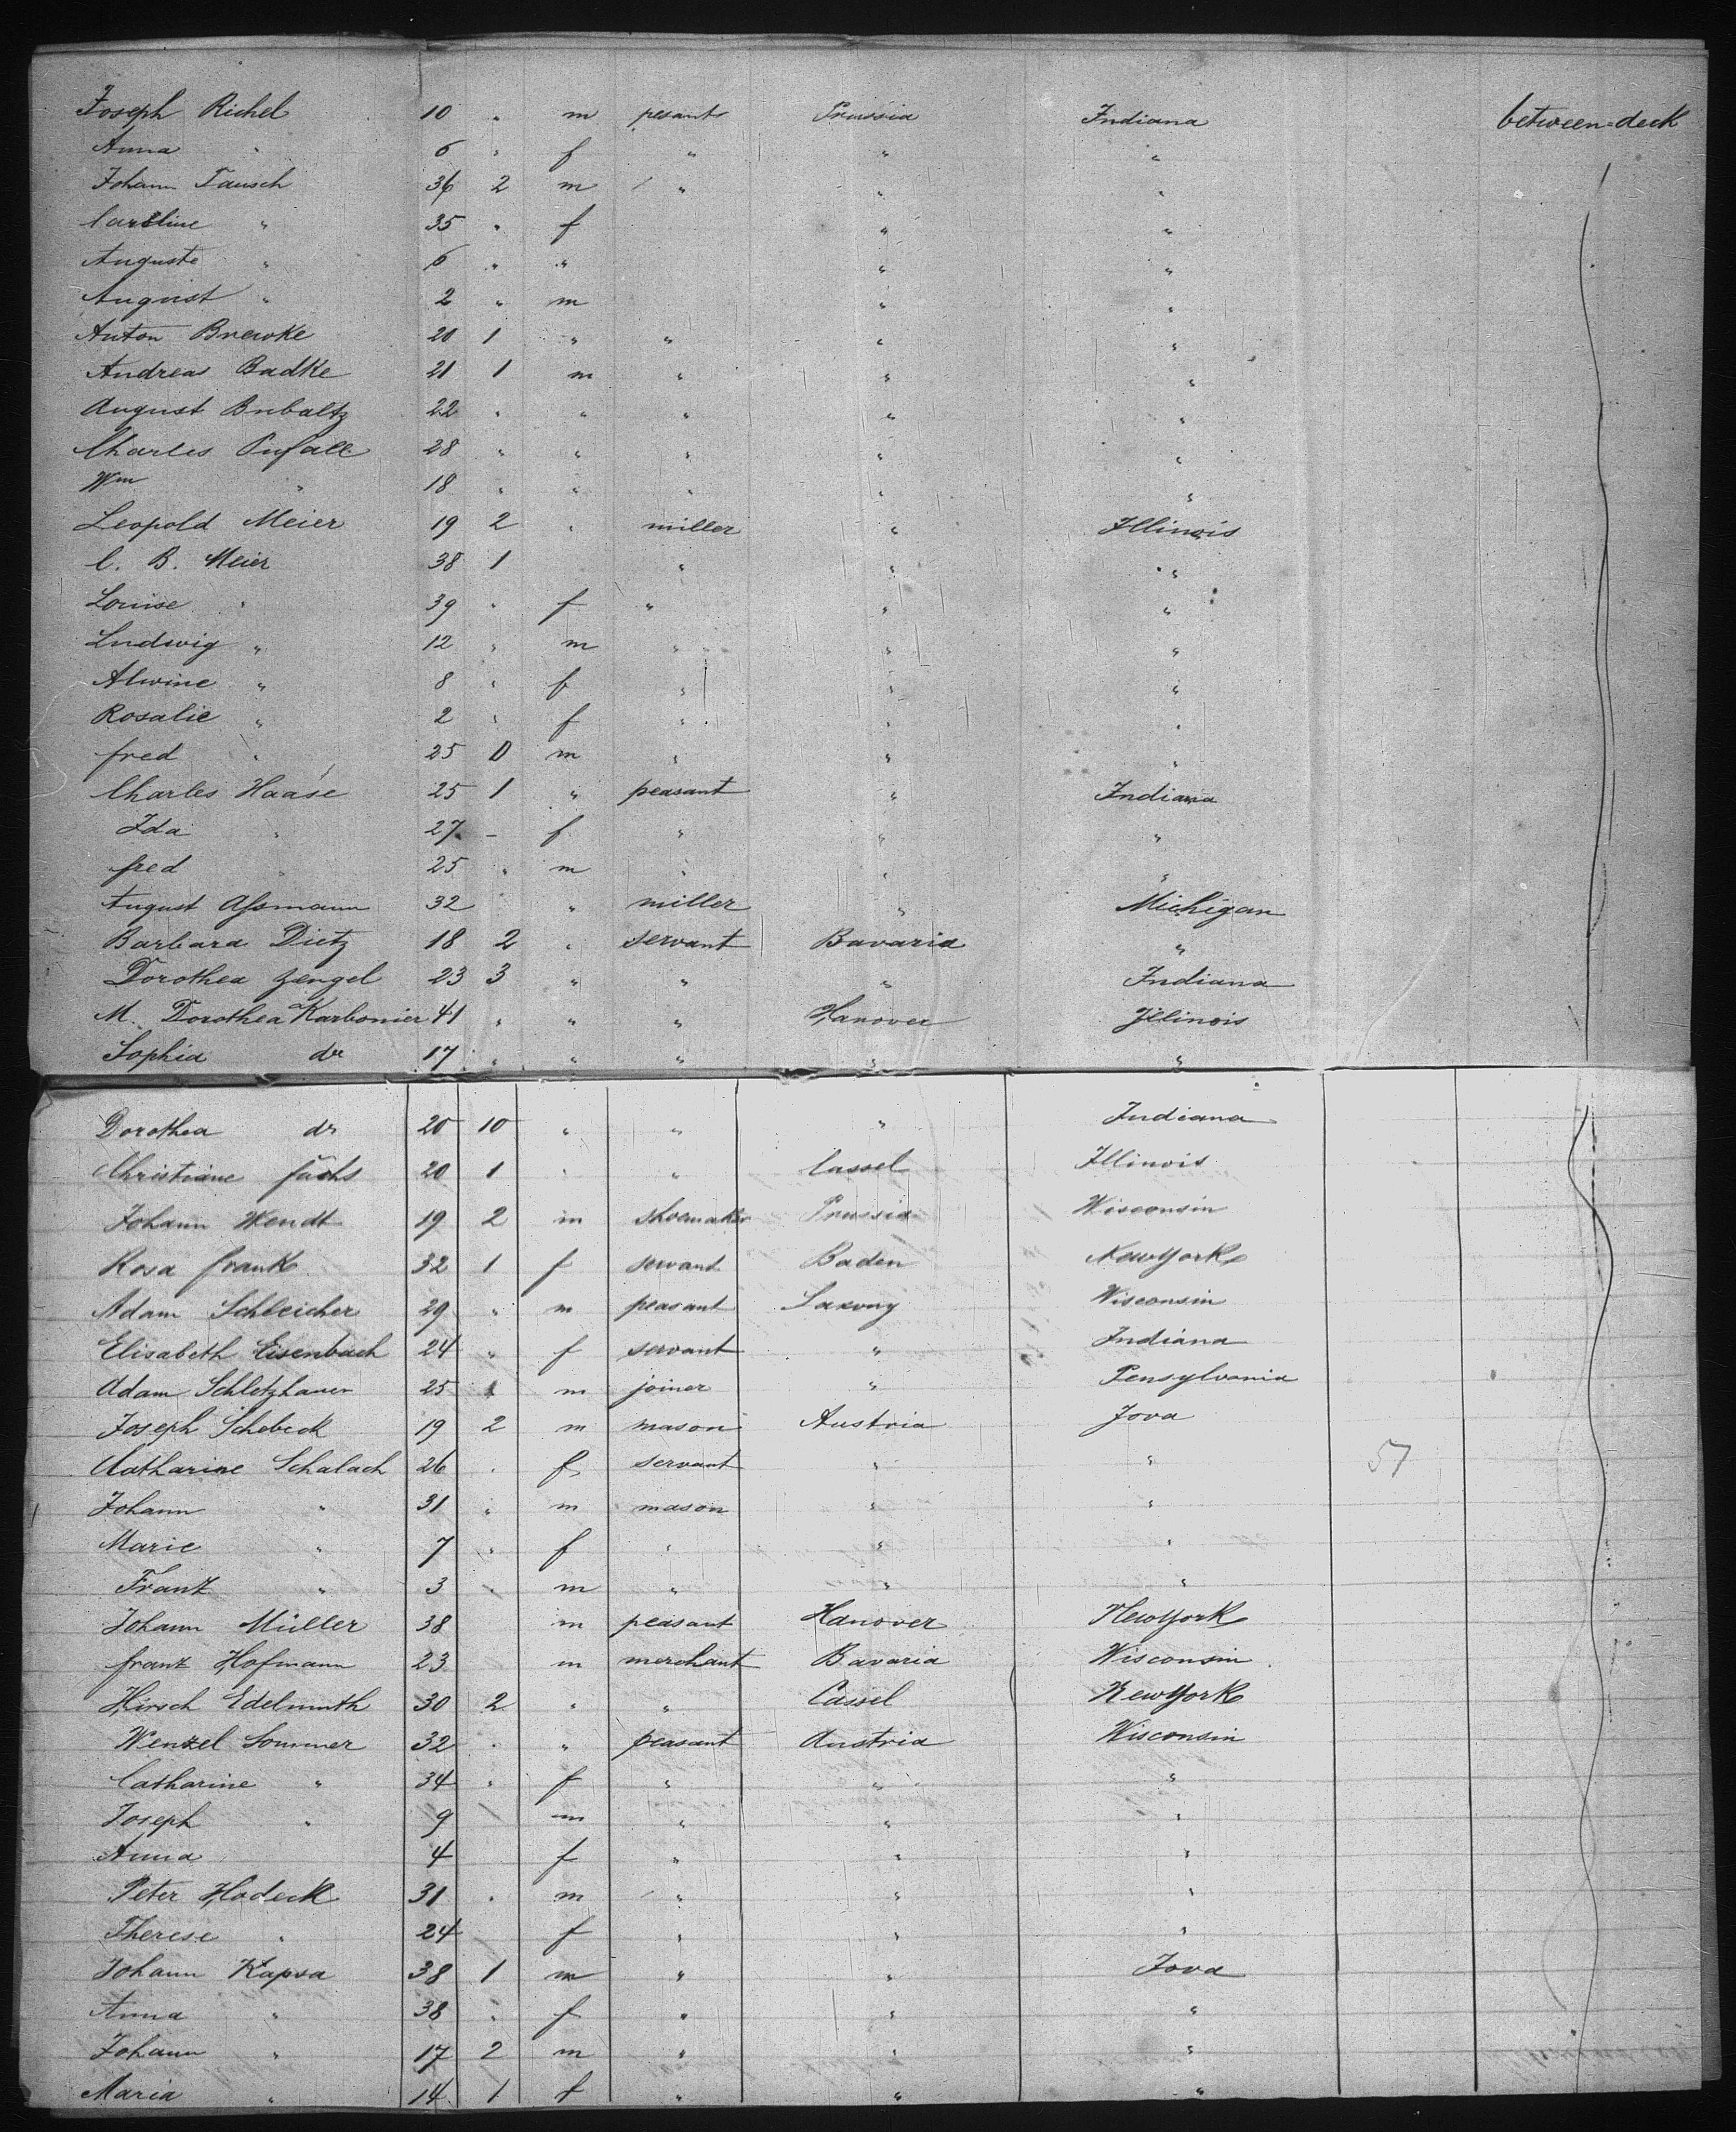 Joseph Richel 10 " m pesants Prussia Indiana between-deck
Anna " 6 " f " " "
Johann Tausch 36 2 m " " "
Caroline " 35 " f " "
Auguste " 6 " " " "
August " 2 " m " "
Anton Brewke 20 1 " " " "
Andreas Badke 21 1 m " " "
August Bubaltz 22 " " " " "
Charles Pufall 28 " " " " "
Wm " 18 " " " " "
Leopold Meier 19 2 " miller " Illinois
C. B. Meier 38 1 " " "
Louise " 39 " f " " "
Ludwig " 12 " m " " "
Alwine " 8 " f " " "
Rosalie " 2 " f " " "
fred " 25 0 m " " "
Charles Haase 25 1 " peasant " Indiana
Ida " 27 - f " " "
fred " 25 " m " " "
August Assmann 32 " miller " Michigan
Barbara Dietz 18 2 " servant Bavaria "
Dorothea Zengel 23 3 " " " Indiana
M. Dorothea Karbonier 41 " " " Hanover Illinois
Sophia do 17 " " " " "
Dorothea do 20 10 " " " Indiana
Christiane fuchs 20 1 " " Cassel Illinois
Johann Wendt 19 2 m shoemaker Prussia Wisconsin
Rosa frank 32 1 f servant Baden NewYork
Adam Schleicher 29 " m peasant Saxony Wisconsin
Elisabeth Eisenbach 24 " f servant " Indiana
Adam Schletzhauer 25 m joiner " Pensylvania
Joseph Schebeck 19 2 m mason Austria Jova
Catharine Schalach 26 " f servant " " 57
Johann " 31 " m mason " "
Marie " 7 " f " " "
Franz " 3 " m " " "
Johann Müller 38 m peasant Hanover NewYork
franz Hofmann 23 m merchant Bavaria Wisconsin
Hirsch Edelmuth 30 2 " " Cassel NewYork
Wenzel Sommer 32 " " peasant Austria Wisconsin
Catharine " 34 " f " " "
Joseph " 9 m " " "
Anna 4 f " " "
Peter Hodeck 31 " m " " "
Therese " 24 f " " "
Johann Kapsa 38 1 m " " Jova
Anna " 38 " f " " "
Johann " 17 2 m " " "
Maria " 14 1 f " " "